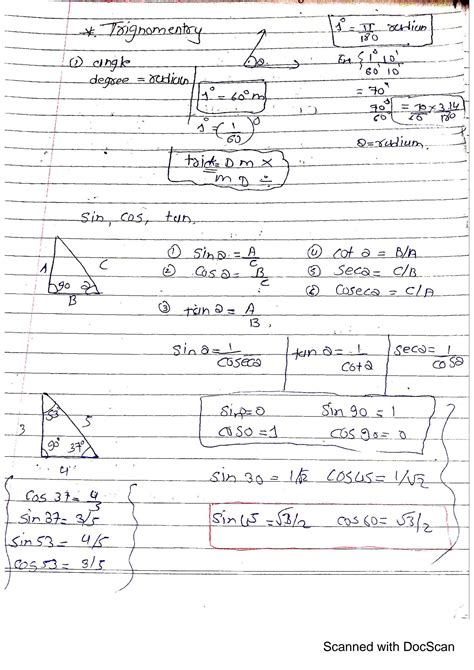 * Trignomentry
1° = π/180 radian
① angle
degree = radian
1° = 60 m
1' = (1/60)°
1°, 10'
60' 10'
= 70'
70°/60° = 70/60 × 3.14/180
a = radian.
trick = D m ×
m D ÷
sin, cos, tan.
A C
90 a
B
① Sin a = A/C
② Cos a = B/C
③ tan a = A/B.
④ cot a = B/A
⑤ Sec a = C/B
⑥ Cosec a = C/A
Sin a = 1/Coseca
tan a = 1/Cot a
Sec a = 1/Cos a
53
3 5
90° 37°
4
Sin = 0 Sin 90 = 1
Cos 0 = 1 Cos 90 = 0
Cos 37 = 4/5
Sin 37 = 3/5
Sin 53 = 4/5
Cos 53 = 3/5
Sin 30 = 1/√2 Cos 45 = 1/√2
cos 60 = √3/2
Scanned with DocScan